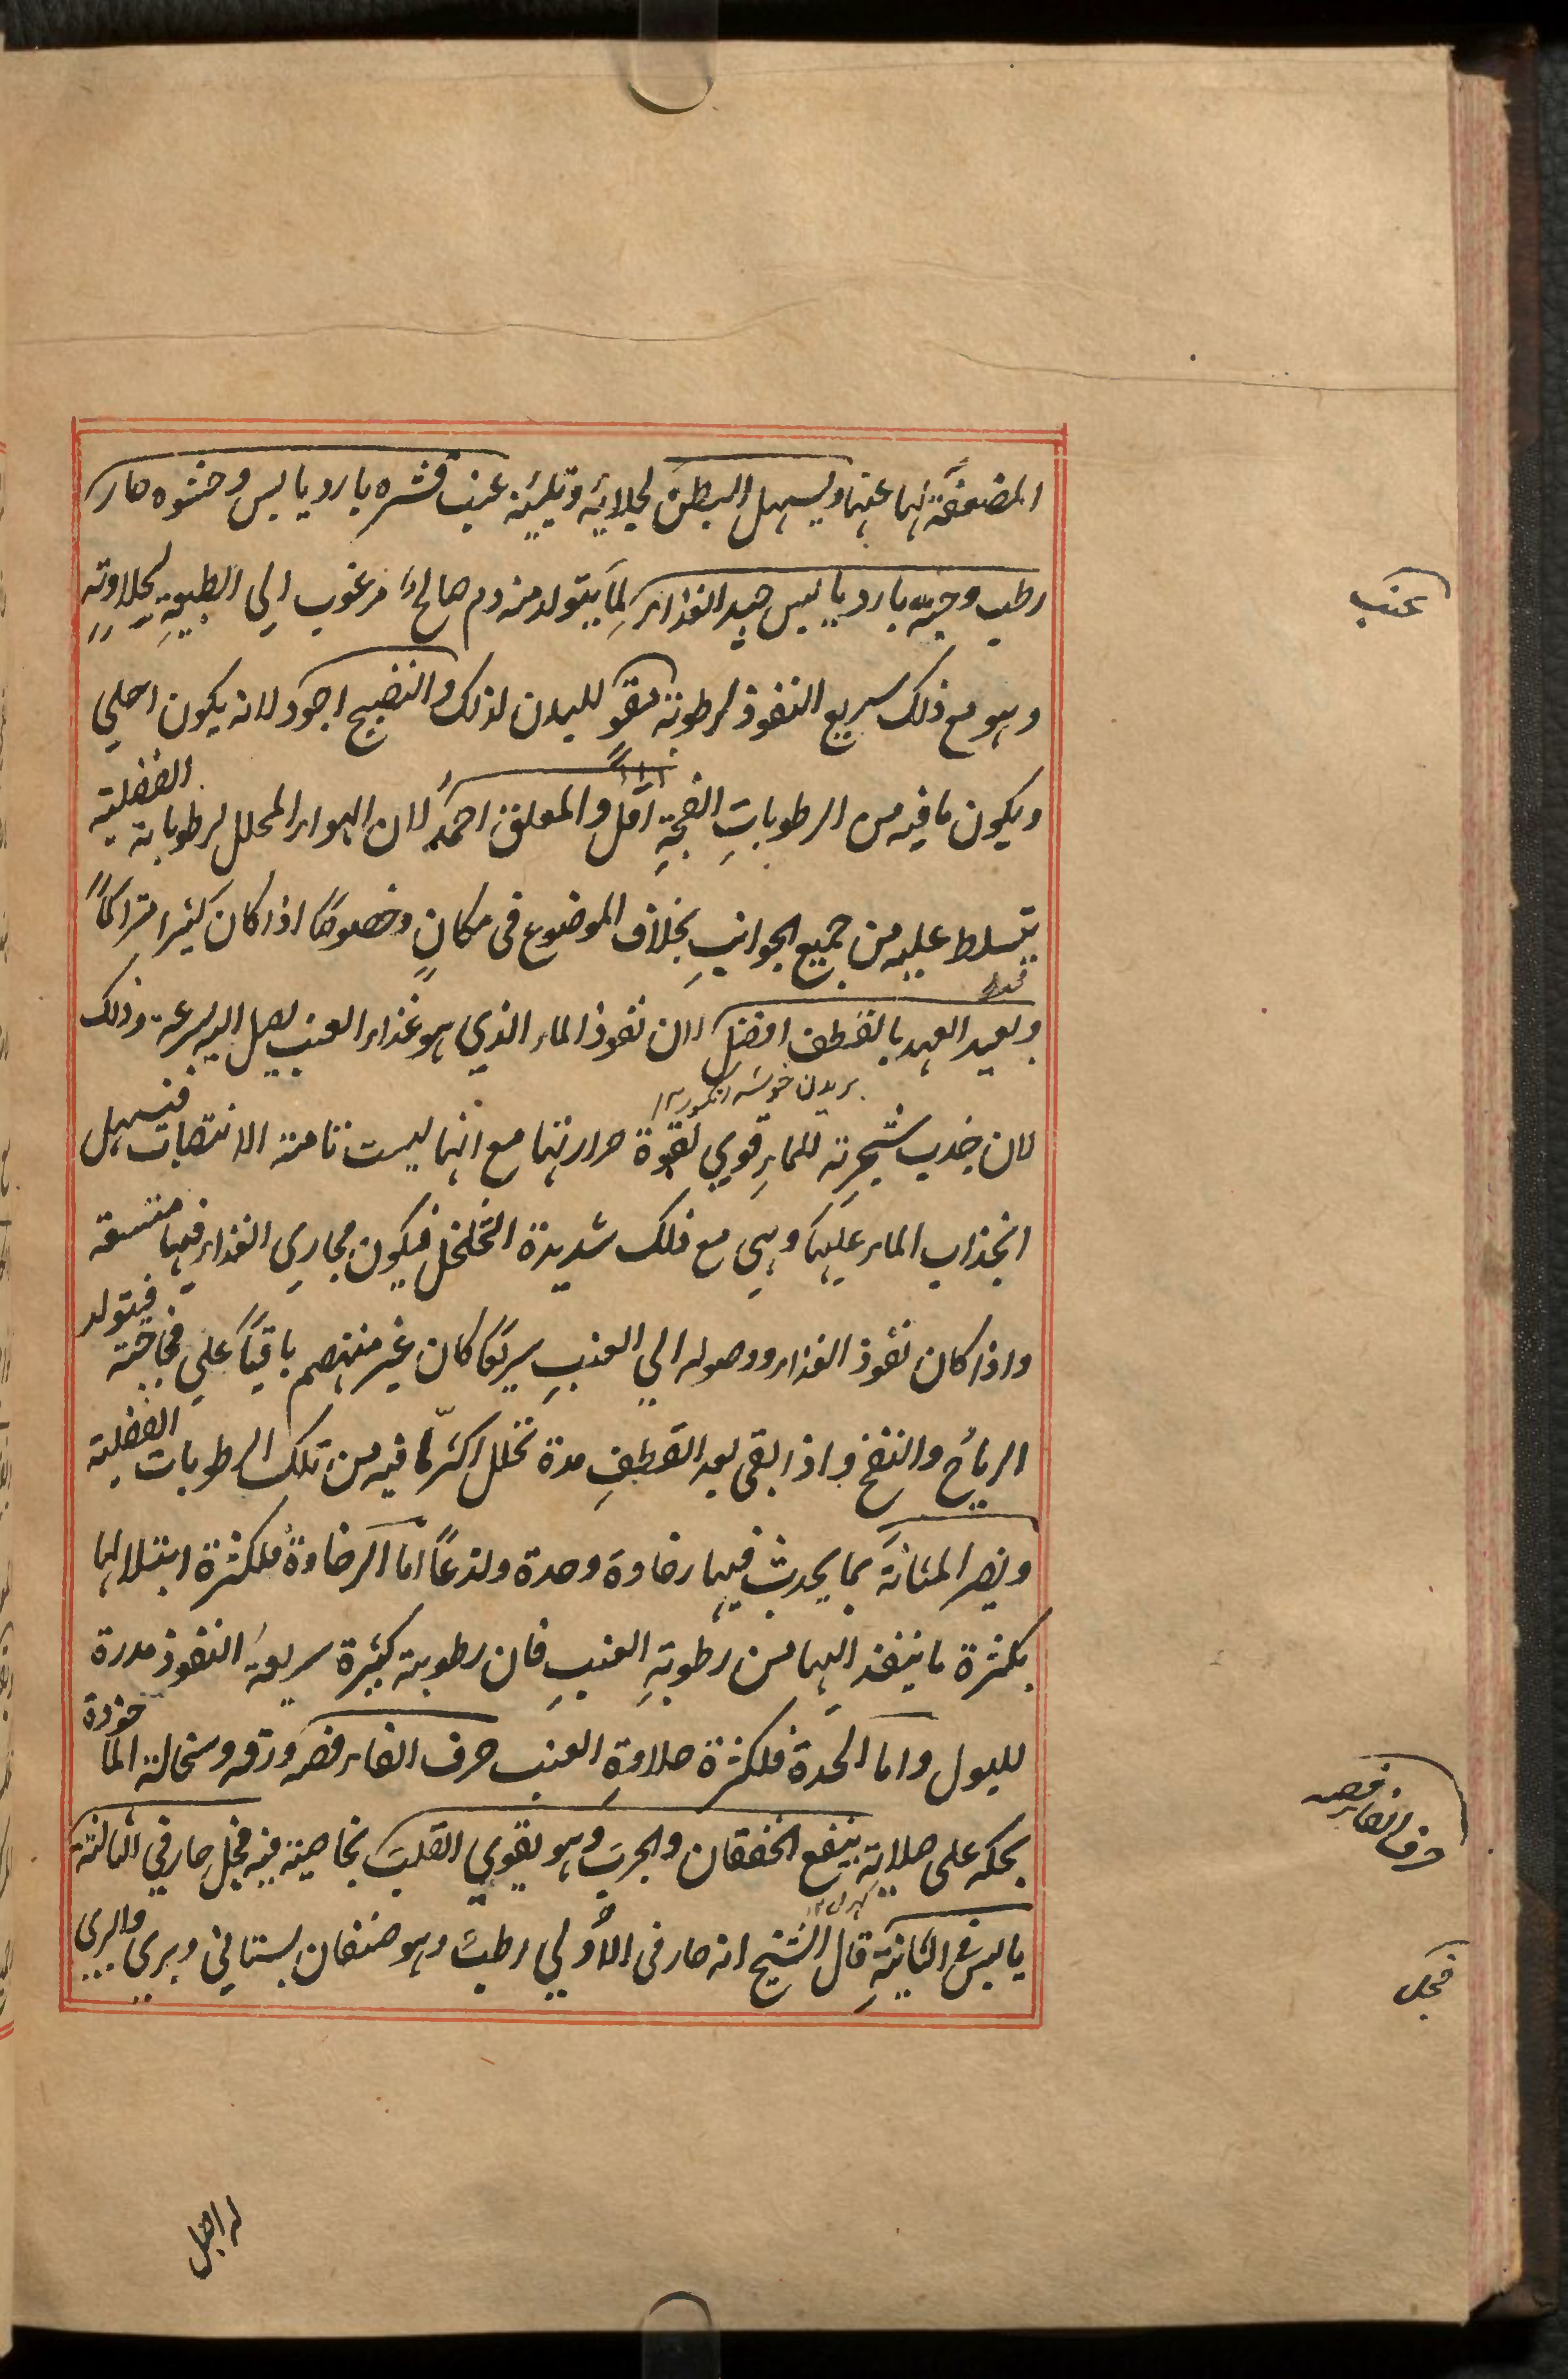 المضعفة لها عنها ويسهل البطن لجلائه وتليينه عنب قشره بارد يابس وحشوه حار
رطب وحبه بارد يابس جيد الغذاء لما يتولد منه دم صالح مرغوب الي الطبيعة لحلاوته
وهو مع ذلك سريع النفوذ لرطوبته مقو للبدن لذلك والنضيج اجود لانه يكون احلي
ويكون ما فيه من الرطوبات الفجة اقل والمعلق احمد لان الهواء المحلل لرطوباته الفضلية
يتسلط عليه من جميع الجوانب بخلاف الموضوع في مكان وخصوصا اذا كان كثيرا متراكما
وبعيد العهد بالقطف افضل لان نفوذ الماء الذي هو غذاء العنب يصل اليه بسرعة وذلك
بريدن خوشه انگور ١٢
لان جذب شجرته للماء قوي لقوة حرارتها مع انها ليست تامة الانتصاب فيسهل
انجذاب الماء عليها وهي مع ذلك شديدة التخلخل فيكون مجاري الغذاء فيها متسعة
واذا كان نفوذ الغذاء ووصوله الي العنب سريعا كان غير منهضم باقيا علي فجاجته فيتولد
الرياح والنفخ واذا بقي بعد القطف مدة تحلل اكثر ما فيه من تلك الرطوبات الفضلية
ويضر المثانة بما يحدث فيها رخاوة وحدة ولذعا اما الرخاوة فلكثرة ابتلالها
بكثرة ما ينفذ اليها من رطوبة العنب فان رطوبته كثيرة سريعة النفوذ مدرة
للبول واما الحدة فلكثرة حلاوة العنب حرف الفاء فضه ورقه وسحالة الماخوذة
بحكه على صلابة ينفع الخفقان والجرب وهو يقوي القلب بخاصية فيه فجل حار في الثالثة
يابس في الثانية قال الشيخ انه حار في الأولي رطب وهو صنفان بستاني وبري والبري
عنب
حرف الفاء فضه
فجل
له اقبل